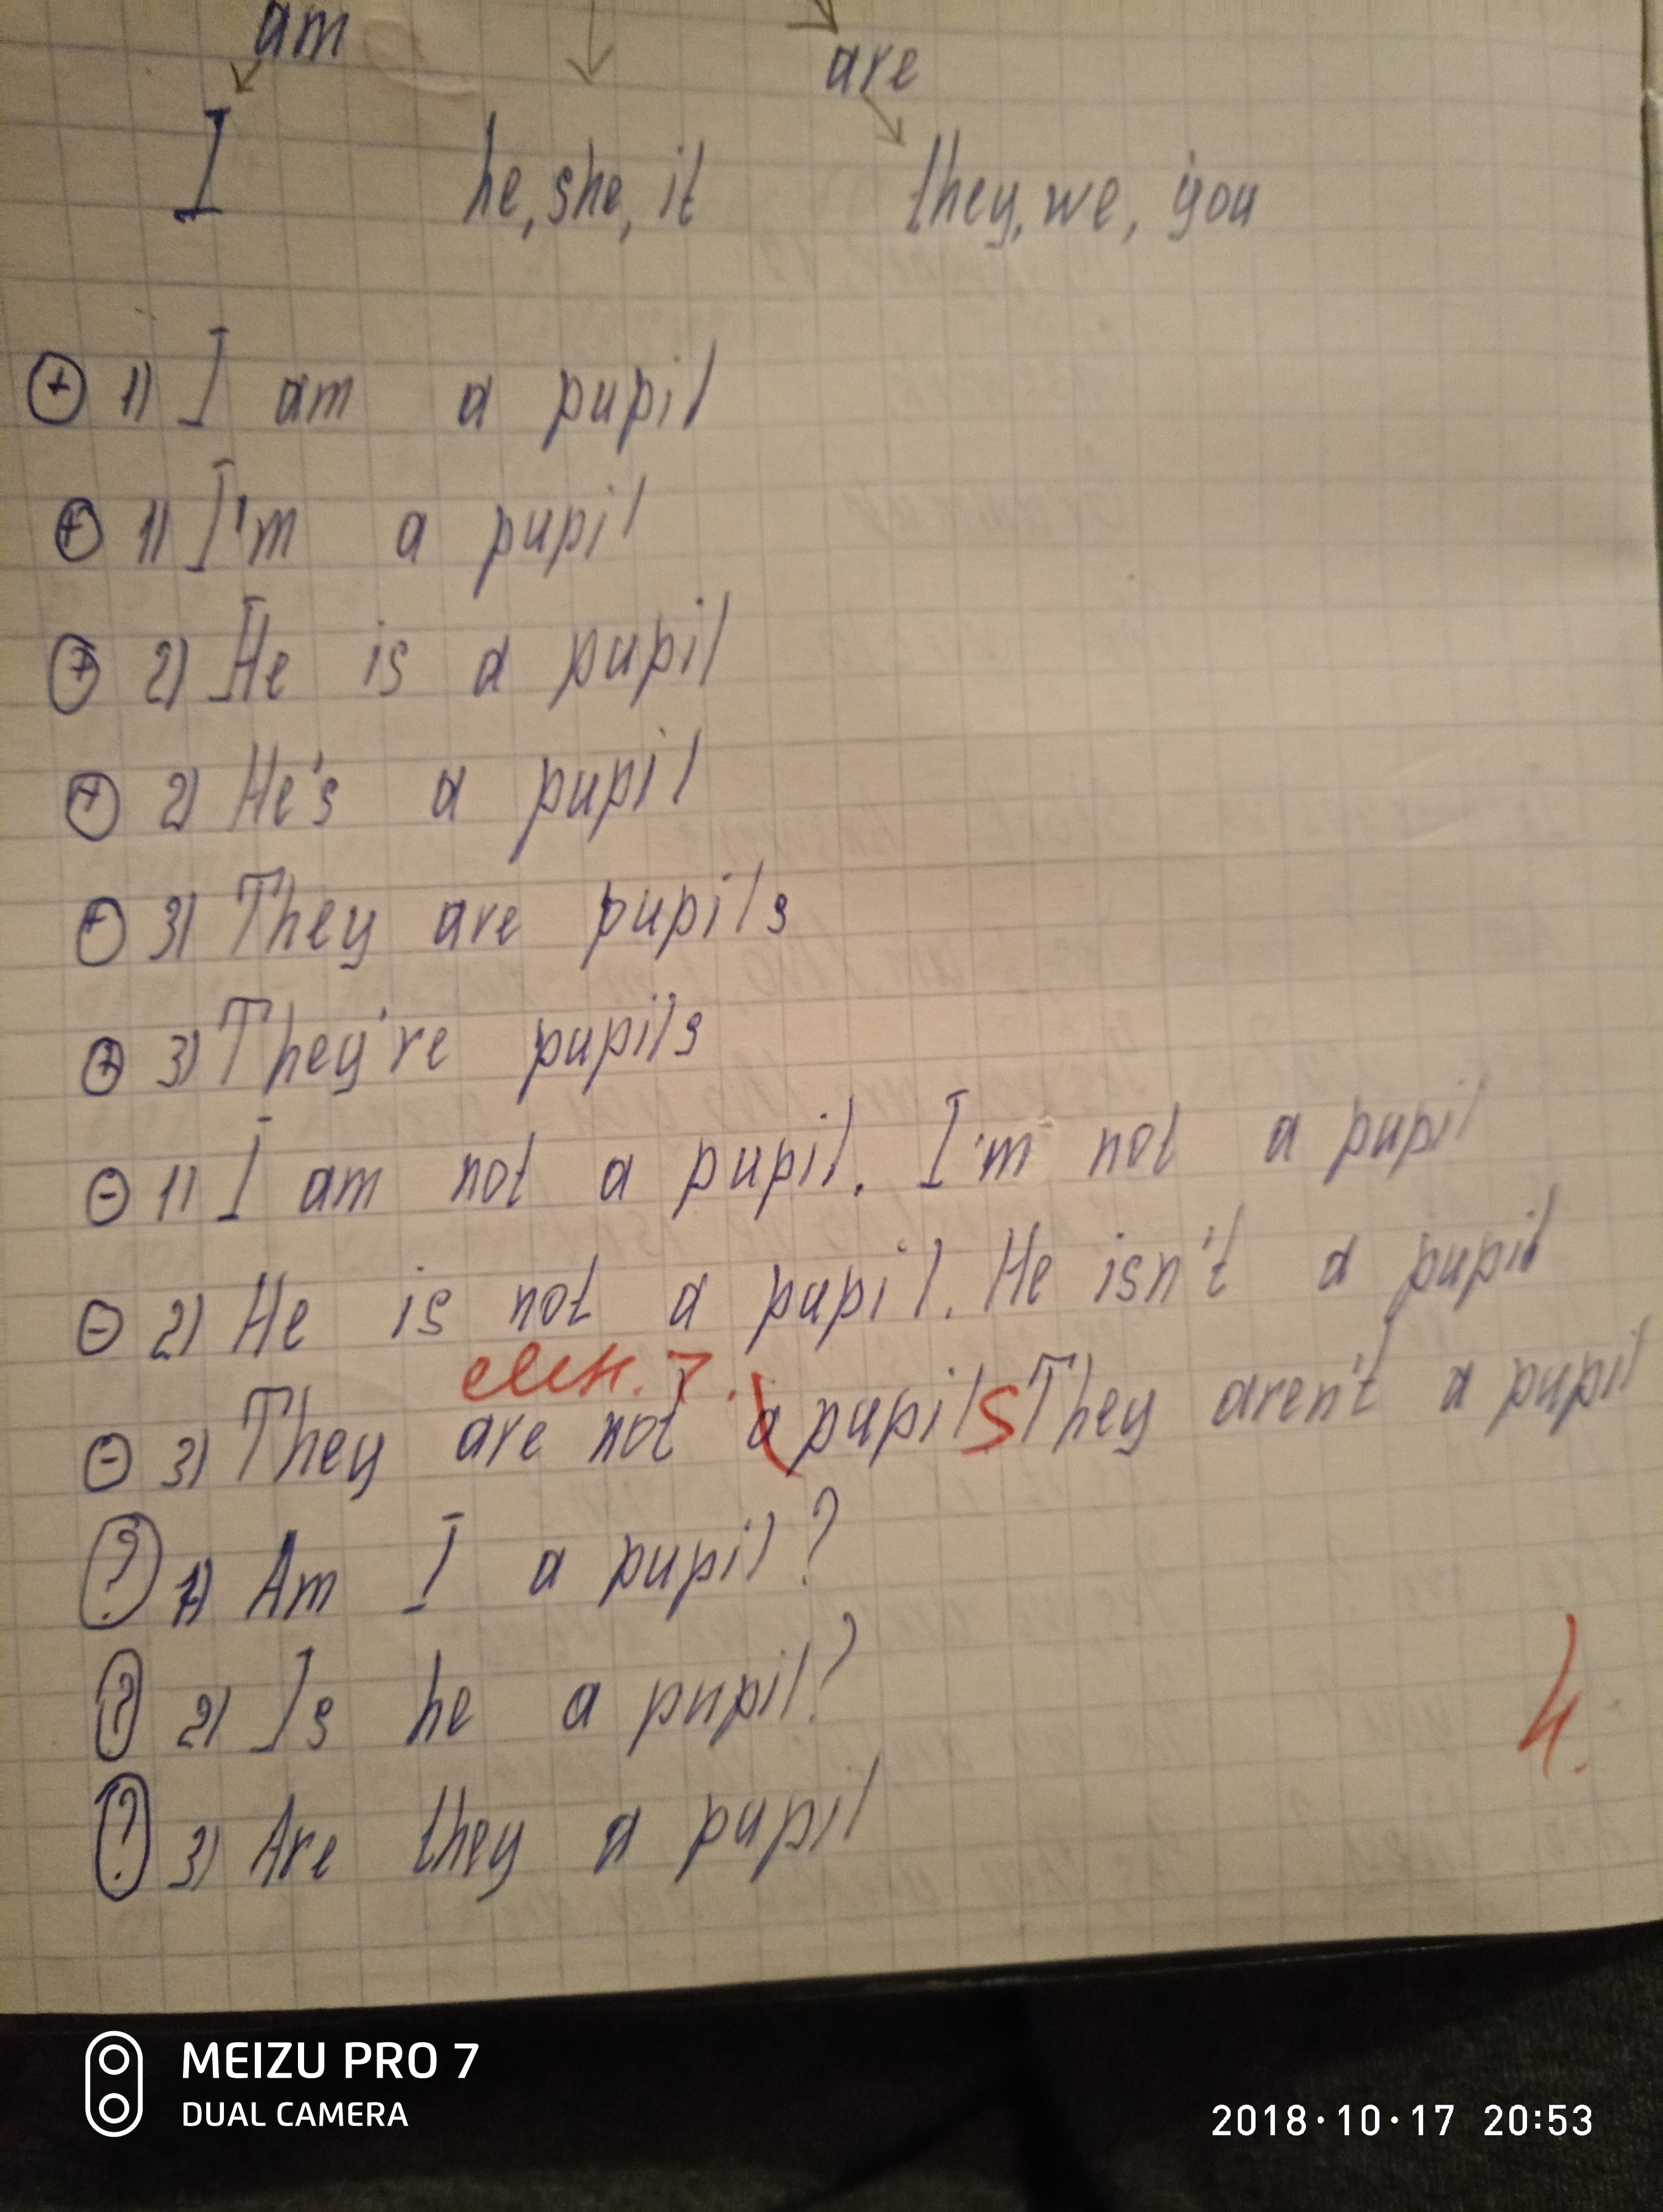 am
are
I he, she, it they, we, you
⊕ 1) I am a pupil
⊕ 1) I'm a pupil
⊕ 2) He is a pupil
⊕ 2) He's a pupil
⊕ 3) They are pupils
⊕ 3) They're pupils
⊖ 1) I am not a pupil. I'm not a pupil
⊖ 2) He is not a pupil. He isn't a pupil
⊖ 3) They are not a pupils They aren't a pupil
? 1) Am I a pupil?
? 2) Is he a pupil?
? 3) Are they a pupil
4.
MEIZU PRO 7
DUAL CAMERA
2018·10·17 20:53